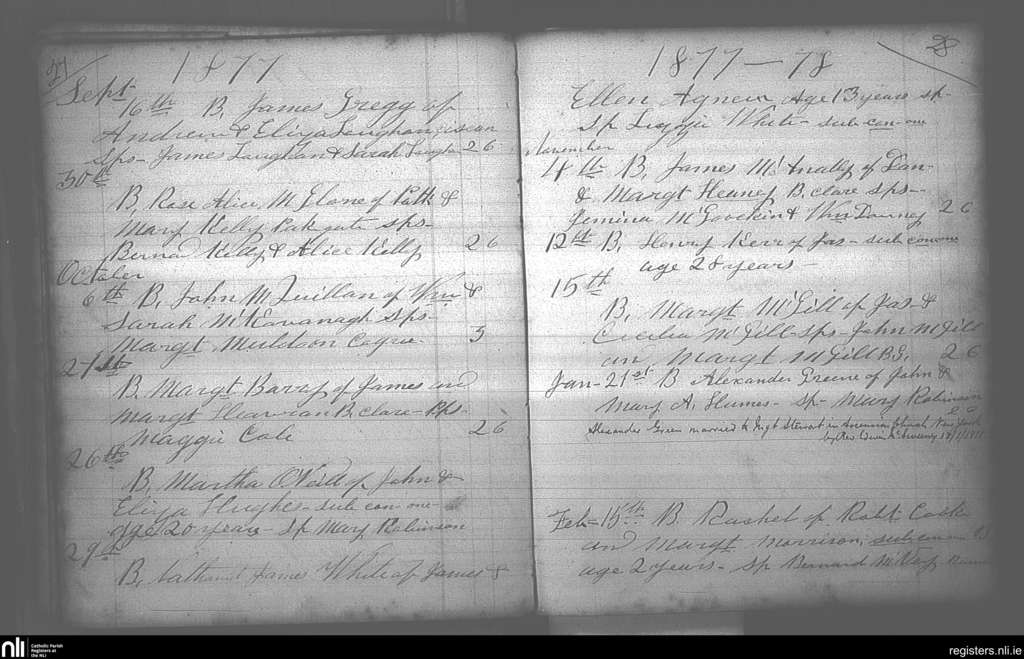 27
1877
Sept
16th B, James Gregg of
Andrew & Eliza
Sps- James & Sarah 26
30th
B, Rose Alice of Patk &
Mary Kelly Parkgate sps-
Bernd Kelly & Alice Kelly 26
October
6th B, John McQuillan of Wm &
Sarah McKavanagh Sps-
Margt Muldoon 5
21st
B, Margt of James and
Margt B, clare- Sps-
Maggie Cole 26
26th
B, Martha O'Neill of John &
Eliza Hughes- sub con one-
age 20 years- Sp Mary Robinson
29th
B, James White of James &
28
1877-78
Ellen Agnew Age 13 years sp-
Sp White- sub-con-one
November
4th B, James McAnally of Dan-
& Margt Heaney B, clare sps-
Jemina & Wm Downey 26
12th B, Henry Kerr of Jas- sub
age 28 years-
15th
B, Margt McGill of Jas- &
Cecilia McGill- sps- John McGill
and Margt McGill B.G. 26
Jan- 21st B Alexander Greene of John &
Mary A, Humes- sp- Mary Robinson
Alexander Green married to Stewart in Church New York
by Rev
Feb- 15th B Rachel of Robt
and Margt Morrison,
age 2 years- Sp Bernard
nli
Catholic Parish
Registers at
the NLI
registers.nli.ie